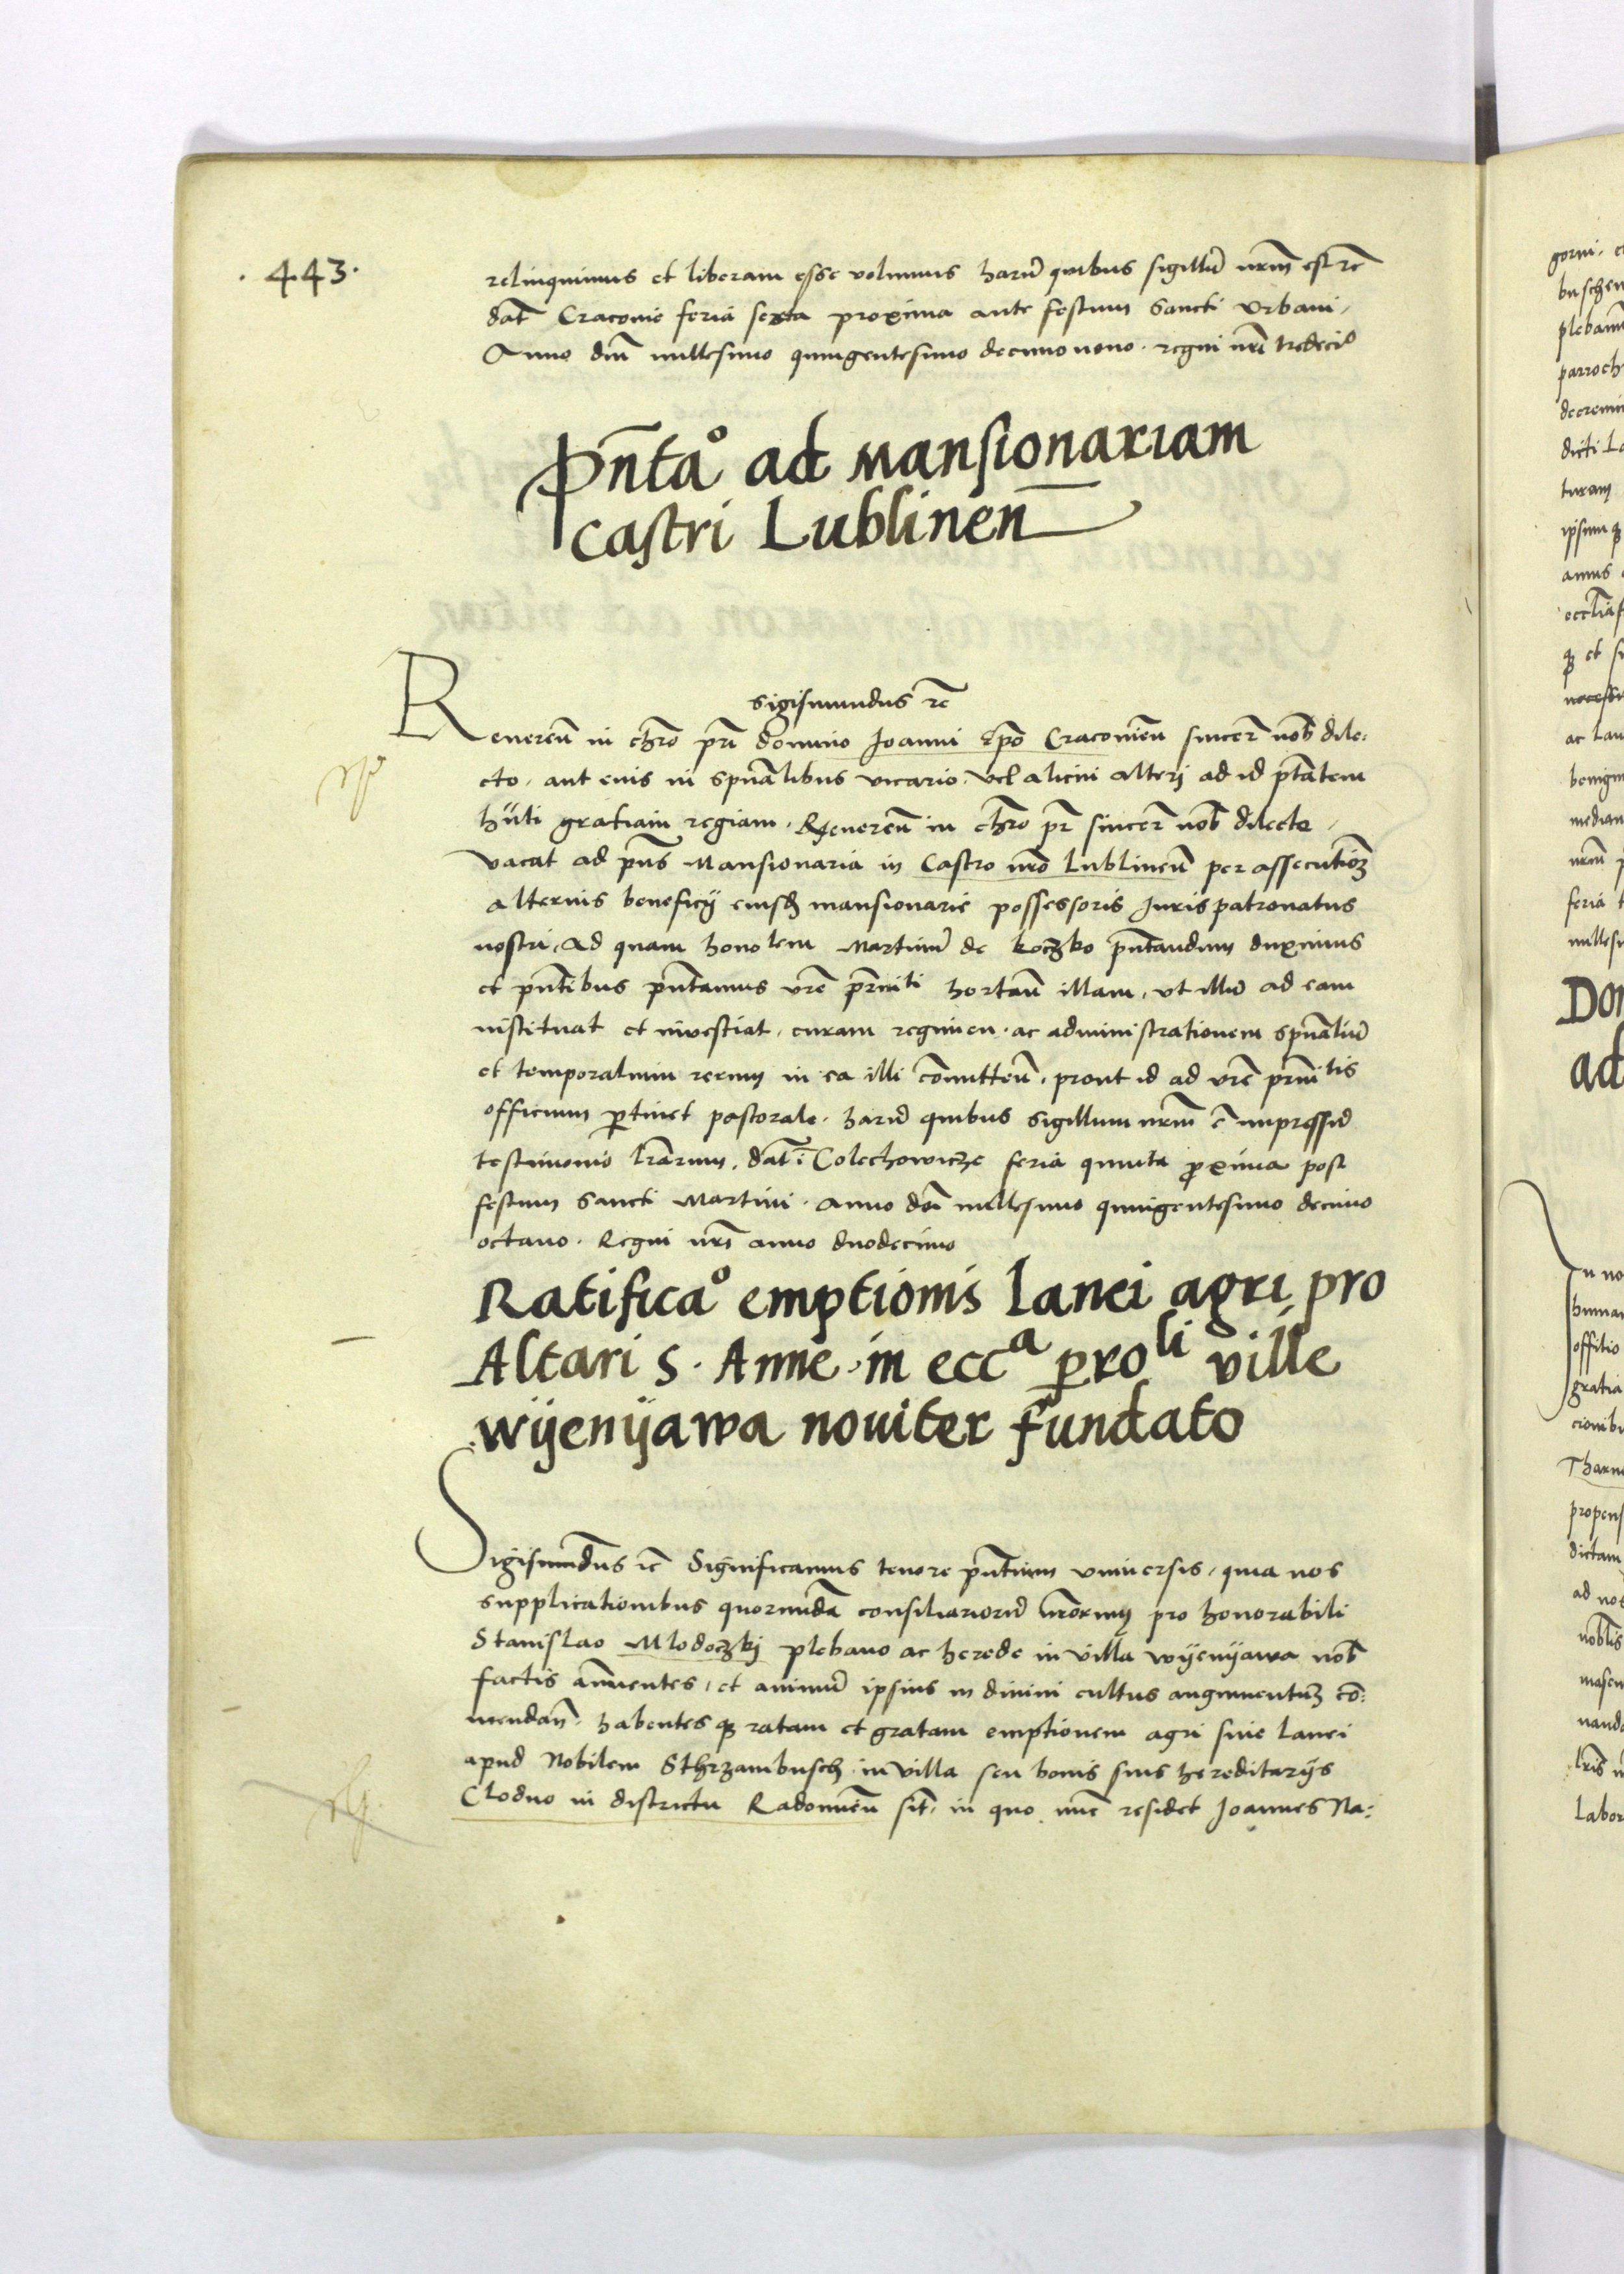 . 443 .
relinquimus et liberam esse volumus harũ quibus sigillũ nrm̃ est rc̃
dat̃ Cracovie feria sexta proxima ante festum Sancti Urbani,
Anno dni̅ millesimo quingentesimo decimo nono . regni nri̅ tredeciº
Pn̅taº ad mansionariam
castri Lublinen̅
Sigismundus rc̃
Reveren̅ in chro̅ pri̅ domino Joanni Ep̅o Cracovien̅ sincer̃ nob̃ dile:
cto . aut eius in spu̅alibus vicario . Vel alicui alteri ad id pta̅tem
hu̅ti gratiam regiam . Reveren̅ in chro̅ pr̃ sincer̃ nob̃ dilecte .
vacat ad pn̅s Mansionaria in Castro nr̅o Lublinen̅ per assecutioꝫ
alterius beneficij eiusd̃ mansionarie possessoris Juris patronatus
nostri, Ad quam honolem Martinũ de koczko pn̅tandum duximus
et pn̅tibus pn̅tamus vre̅ pr̅niti hortan̅ illam, ut illũ ad eam
instituat et investiat, curam regimen . ac administrationem spu̅aliũ
et temporalium rerum in ea illi co̅mitten̅ . prout id ad vre̅ pr̅nitis
officium ꝑtinet pastorale . harũ quibus sigillum nrm̃ ẽ impressũ
testimonio lr̅arum . dat̃ ĩ Colechowicze feria quinta ꝓxima post
festum Sancti Martini . Anno dni̅ millesimo quingentesimo decimo
octavo . Regni nri̅ anno duodecimo
Ratificaº emptionis lanei agri pro
Altari S. Anne in eccᵃ ꝑroˡⁱ ville
wÿenÿawa noviter fundato
Sigismundus rc̃ Significamus tenore pn̅tium universis, quia nos
supplicationibus quorundã consiliariorũ nr̅orum pro honorabili
Stanislao Mlodoczkj plebano ac herede in villa wÿenÿawa nob̃
factis an̅uentes, et animũ ipsius in divini cultus augmentuꝫ co̅:
mendan̅ . habentes qꝫ ratam et gratam emptionem agri sive lanei
apud Nobilem Sthrzambusch in villa seu bonis suis hereditarÿs
Clodno in districtu Radomien̅ sit̃, in quo nu̅c residet Joannes Na: